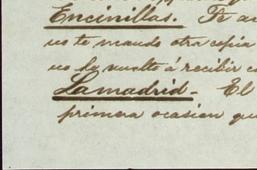 Encinillas. Te
no te mando otra copia
no ha vuelto á recibir
Lamadrid. - El
primera ocasion qu